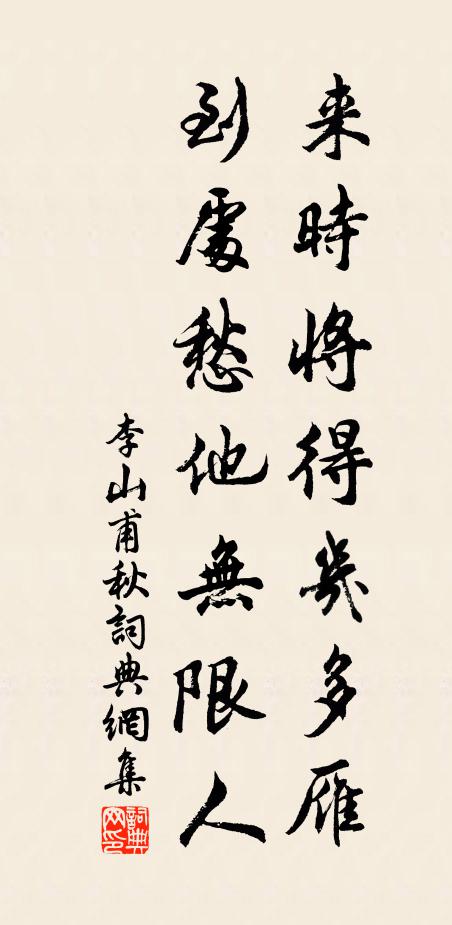 來時將得幾多雁
到處愁他無限人
李山甫秋詞典網集
詞典網印